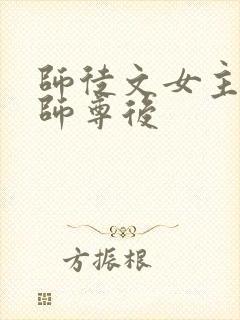 師徒文女主
師尊後
方振根